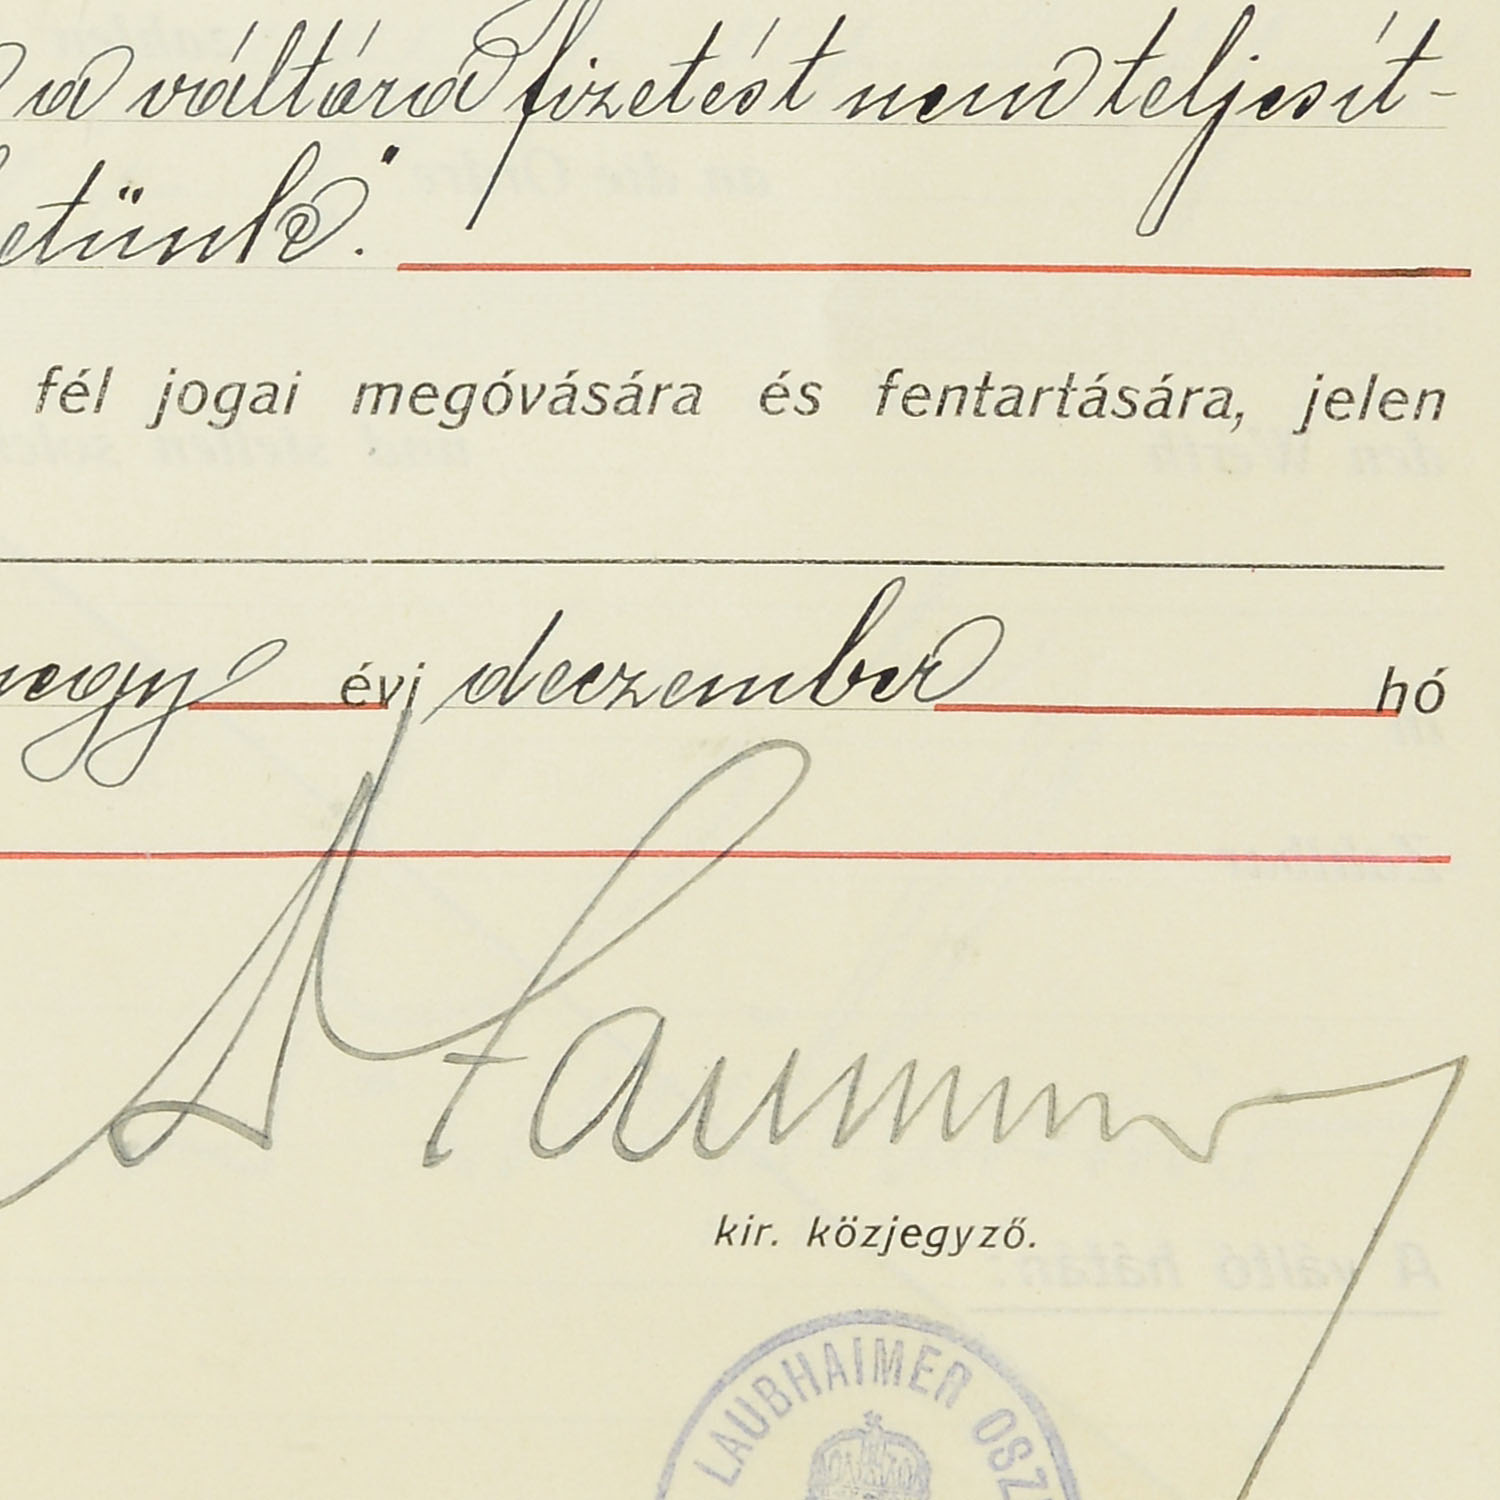 a váltóra fizetést nem teljesít-
etünk."
fél jogai megóvására és fentartására, jelen
negy évi deczember hó
kir. közjegyző.
LAUBHAIMER OSZ
A váltó hátán: